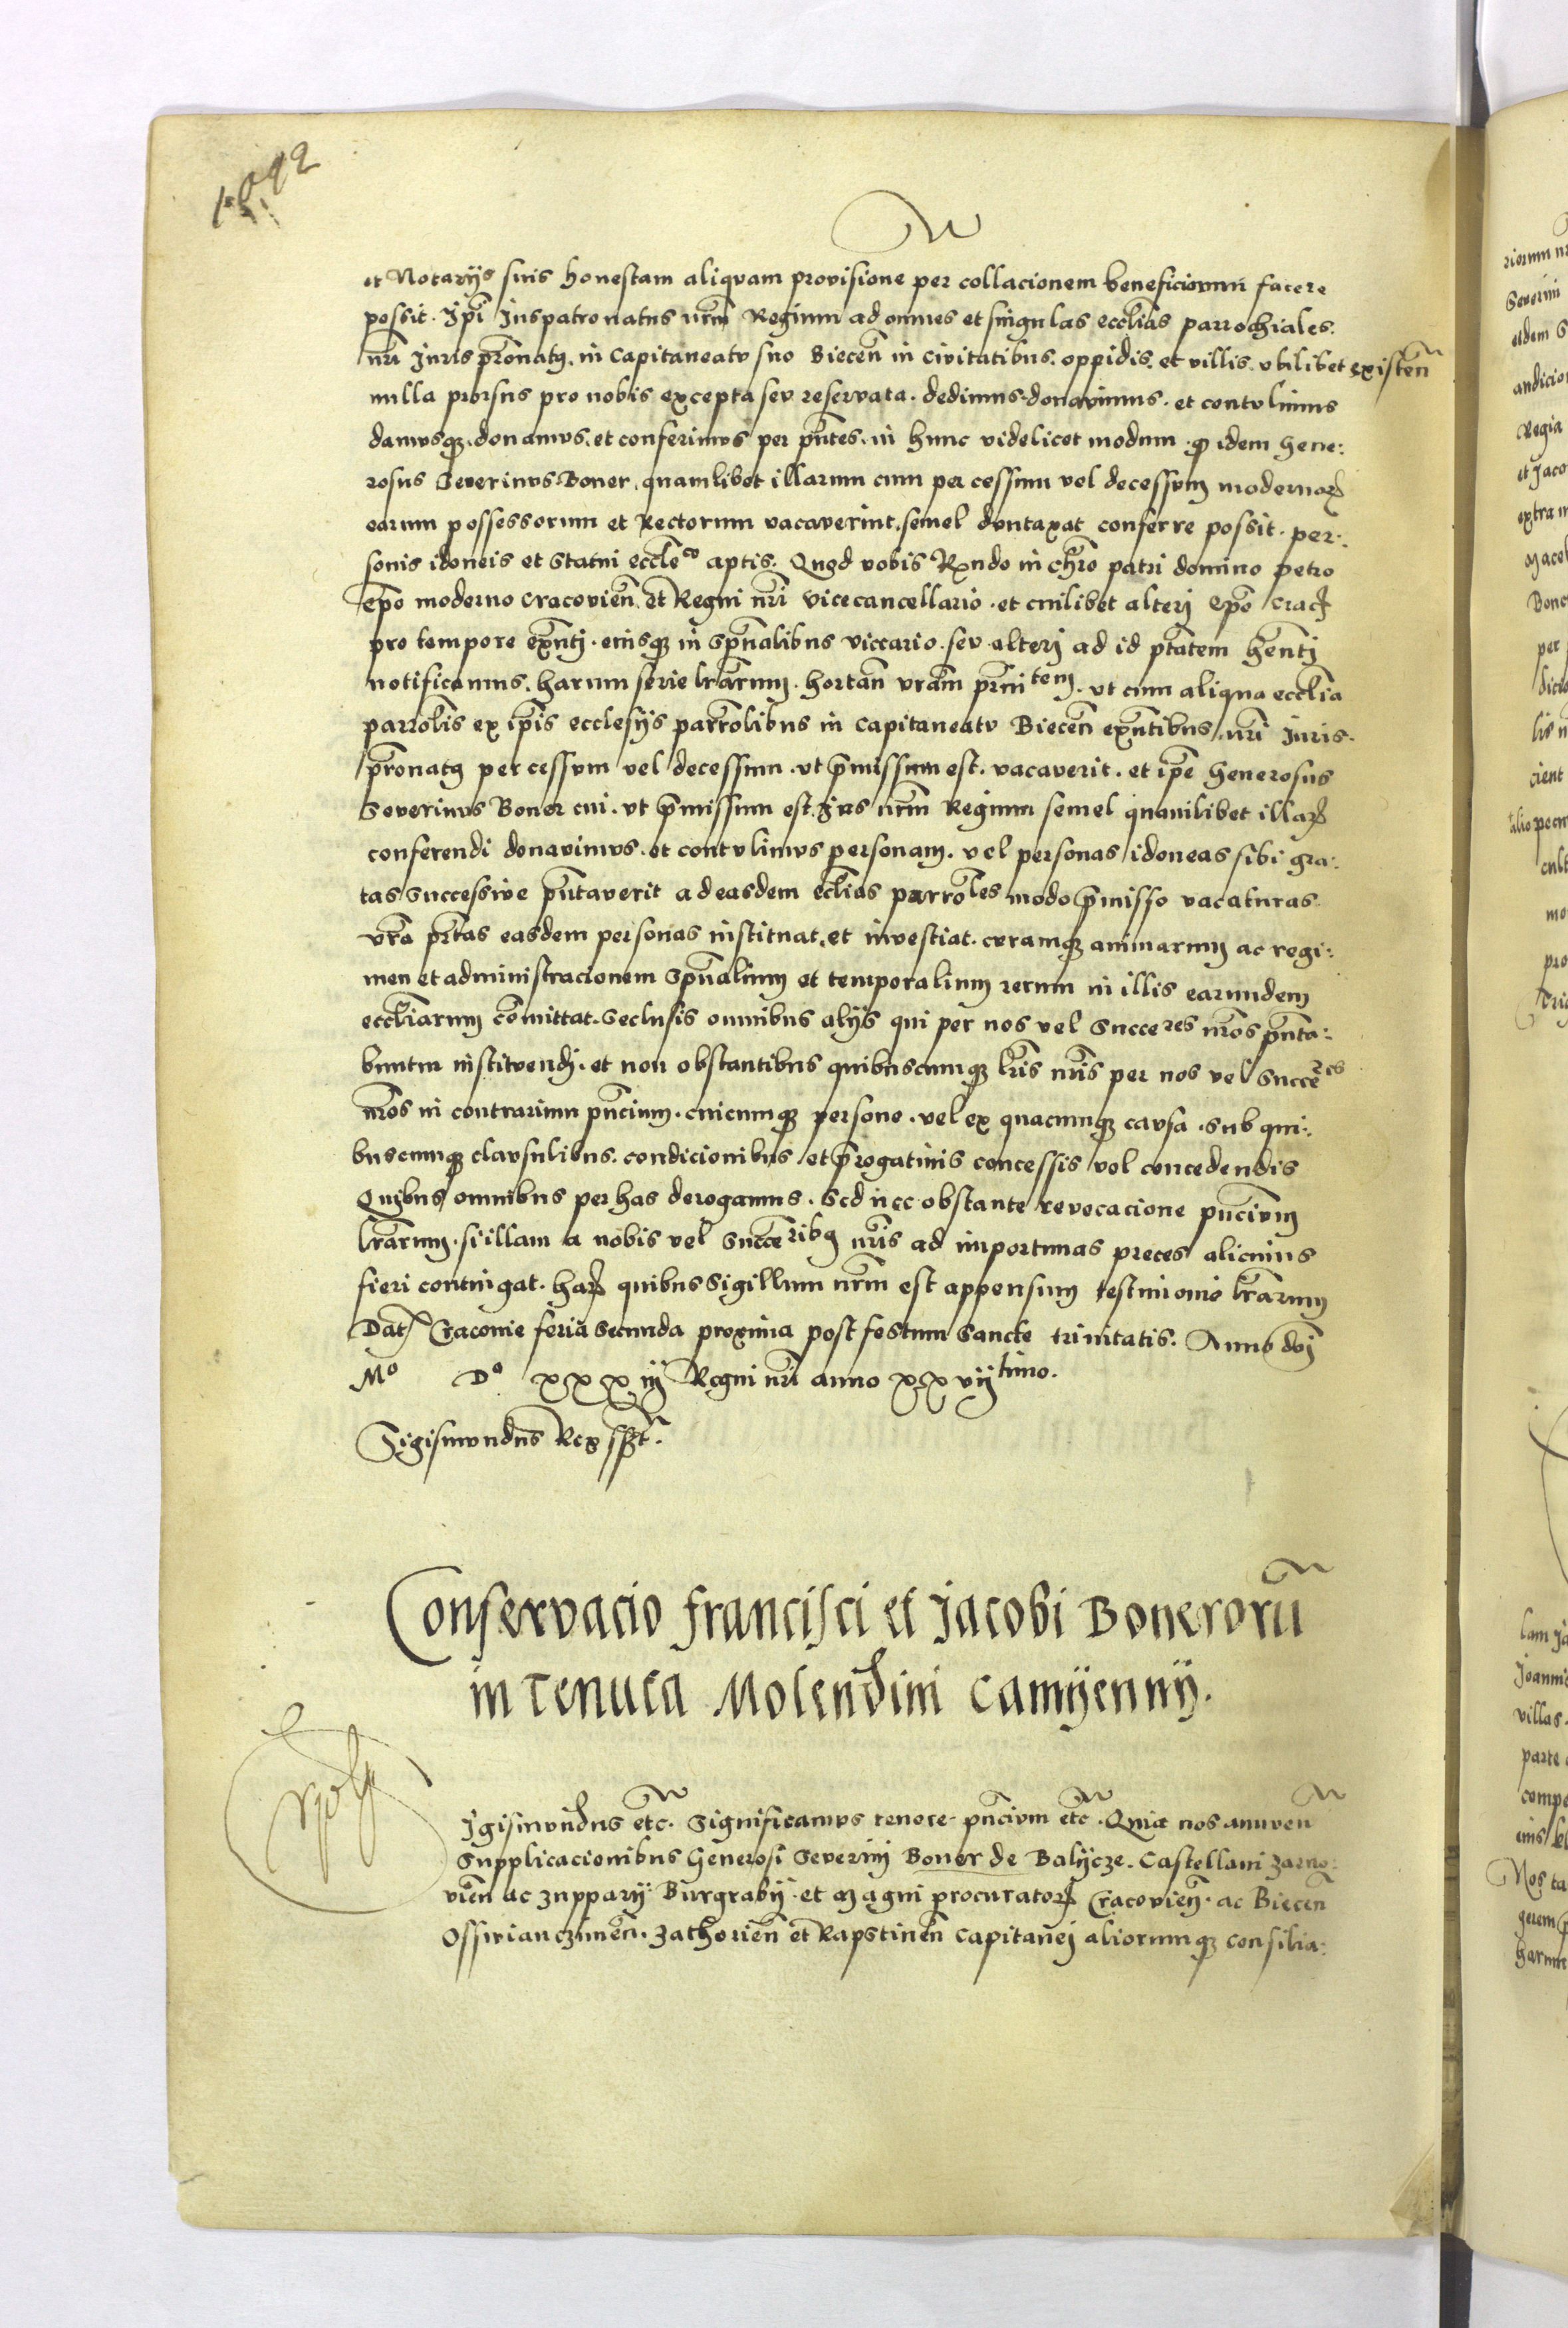 et Notarijs suis honestam aliquam provisione per collacionem beneficiorum facere
possit. Ipsi Juspatronatus nrm Regium ad omnes et singulas ecclias parrochiales.
nri Juris pronatus. in Capitaneatu suo Biecen in Civitatibus. oppidis. et villis. ubilibet existen
nulla prorsus pro nobis excepta seu reservata. dedimus donavimus. et contulimus
damusque. donamus. et conferimus per pntes. in hunc videlicet modum. quod idem Gene:
rosus Severinus Boner, quamlibet illarum cum per cessum vel decessum modernorum
earum possessorum et Rectorum vacaverint. semel duntaxat conferre possit. per:
sonis idoneis et Statui eccleco aptis. Quod vobis Rxndo in chro patri domino petro
epo moderno Cracovien. et Regni nri Vicecancellario. et cuilibet alteri epo Crac
pro tempore exnti. eiusque in Spualibus viccario. seu alteri ad id ptatem henti
notificamus. harum serie lrarum. hortan vram prnitem. ut cum aliqua ecclia
parrolis ex ipis ecclesijs parrolibus in Capitaneatu Biecen exntibus nri Juris.
pronatus per cessum vel decessum. ut pmissum est. vacaverit. et ipe Generosus
Severinus Boner cui. ut pmissum est. Jus nrm Regium semel quamlibet illarum
conferendi donavimus. et contulimus personam. vel personas idoneas sibi gra:
tas successive pntaverit ad easdem eclias parroles modo pmisso vacaturas.
vra prtas easdem personas instituat. et investiat. curamque animarum ac regi:
men et administracionem Spualium et temporalium rerum in illis earundem
eccliarum comittat. Seclusis omnibus alijs qui per nos vel Succeres nros pnta:
buntur instituendi. et non obstantibus quibuscumque lris nris per nos vel Succeres
nros in contrarium pncium. cuicumque persone. vel ex quacumque causa. Sub qui:
buscumque clausulibus. condicionibus et progativis concessis vel concedendis
Quibus omnibus per has derogamus. Sed nec obstante revocacione pncium
lrarum. si illam a nobis vel Succeribus nris ad importunas preces alicuius
fieri contingat. harum quibus Sigillum nrm est appensum testimonio lrarum
Dat Cracovie feria Secunda proxima post festum Sancte trinitatis. Anno doi
Mo Do xxx iij Regni nri anno xx vijtimo.
Sigismundus Rex sszt.
Conservacio francisci et Jacobi Bonerorū
in tenuta Molendini Camyenny.
Igismundus etc. Significamus tenore pncium etc. Quia nos annuen
Supplicacionibus Generosi Severini Boner de Balycze. Castellani Zarno:
vien ac Zupparij Burgrabij. et Magni procuratoris Cracovien. ac Biecen
Osswianczimen. Zathorien et Rapstinen Capitanei aliorumque consilia: